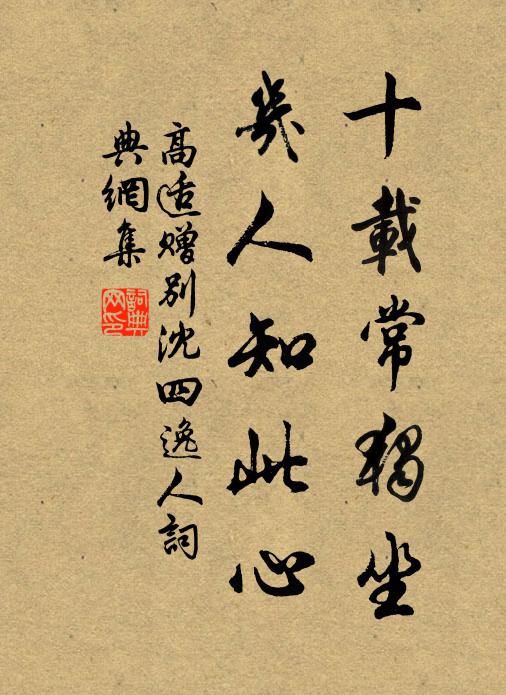 十載常獨坐
幾人知此心
高适贈別沈四逸人詞
典網集
詞典
网印